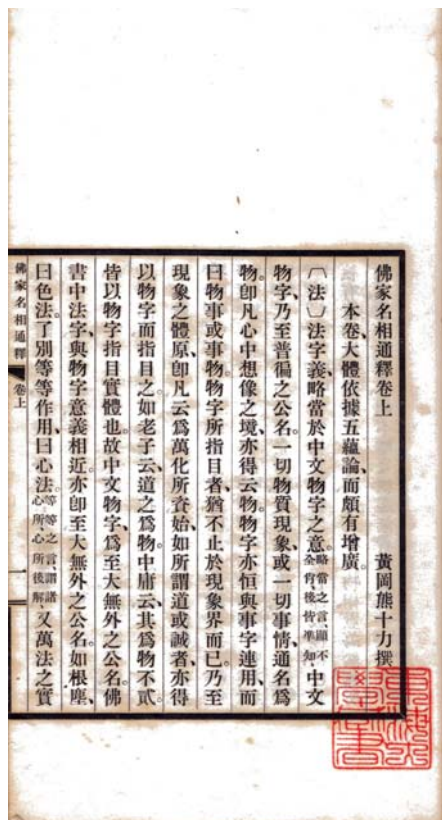 佛家名相通釋卷上
黃岡熊十力撰
本卷、大體依據五蘊論、而頗有增廣。
〔法〕法字義、略當於中文物字之意。略當之言、顯不全肖、後皆準知、中文
物字、乃至普徧之公名。一切物質現象、或一切事情、通名爲
物。卽凡心中想像之境、亦得云物。物字亦恒與事字連用、而
曰物事或事物。物字所指目者、猶不止於現象界而已。乃至
現象之體原、卽凡云爲萬化所資始、如所謂道或誠者、亦得
以物字而指目之。如老子云、道之爲物。中庸云、其爲物不貳。
皆以物字指目實體也。故中文物字、爲至大無外之公名。佛
書中法字、與物字意義相近。亦卽至大無外之公名。如根塵、
曰色法。了別等等作用、曰心法。等等之言、謂諸心所、心所後解、又萬法之實
佛家名相通釋 卷上 一